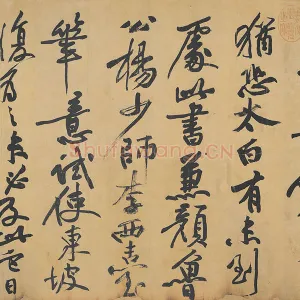 猶恐太白有未到
處此書兼顏魯
公楊少師李西臺
筆意試使東坡
復為之未必及此它日
Shufawang.CN